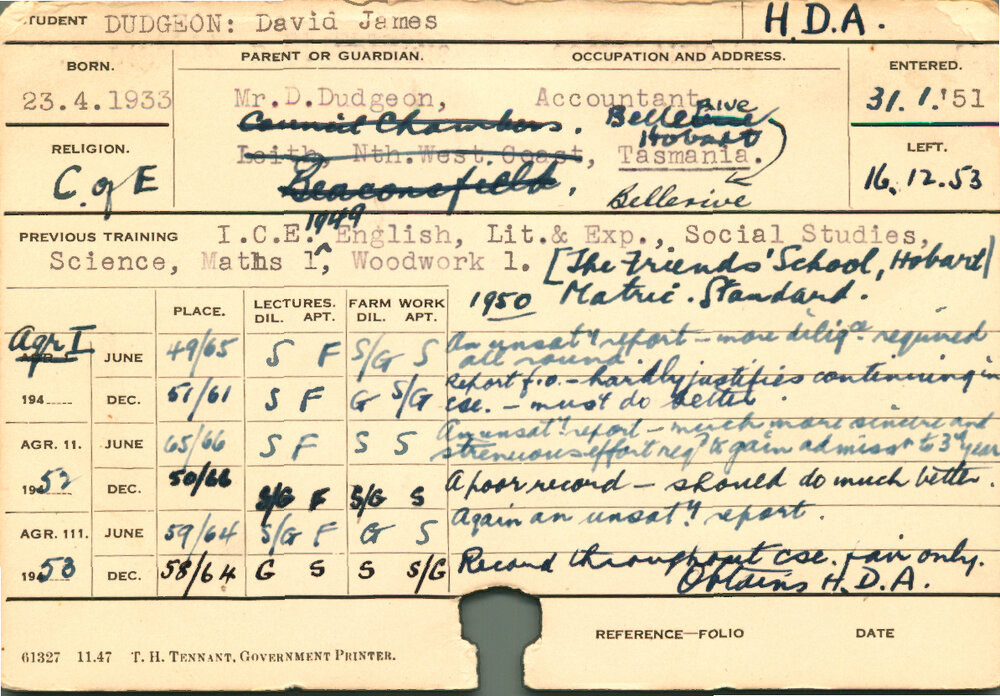 STUDENT DUDGEON: David James H.D.A.
BORN. PARENT OR GUARDIAN. OCCUPATION AND ADDRESS. ENTERED.
23.4.1933 Mr.D.Dudgeon, Accountant 31.1.'51
Council Chambers. Bellerive rive
Hobart
RELIGION. Leith, Nth.West.Coast, Tasmania. LEFT.
C. of E Beaconsfield. Bellerive 16.12.53
1949
PREVIOUS TRAINING I.C.E. English, Lit.& Exp., Social Studies,
Science, Maths 1, Woodwork 1. [The Friends' School, Hobart]
1950 Matric. Standard.
PLACE. LECTURES. FARM WORK
DIL. APT. DIL. APT.
Agr I AGR. 1. JUNE 49/65 S F S/G S An unsaty report – more diligce required
all round.
194 DEC. 57/61 S F G S/G Report f.o. – hardly justifies continuing in
cse. – must do better.
AGR. 11. JUNE 65/66 S F S S An unsaty report – much more sincere and
strenuous effort reqd to gain admissn to 3rd year
1952 DEC. 50/66 S/G F S/G S A poor record – should do much better.
AGR. 111. JUNE 59/64 S/G F G S Again an unsaty report.
1953 DEC. 58/64 G S S S/G Record throughout cse. fair only.
Obtains H.D.A.
REFERENCE—FOLIO DATE
61327 11.47 T. H. TENNANT, GOVERNMENT PRINTER.